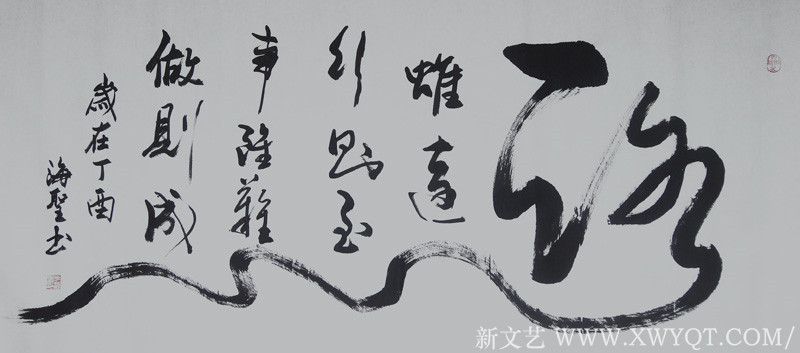 路
雖遠
行則至
事雖難
做則成
歲在丁酉
海聖书
新文艺 WWW.XWYQT.COM/